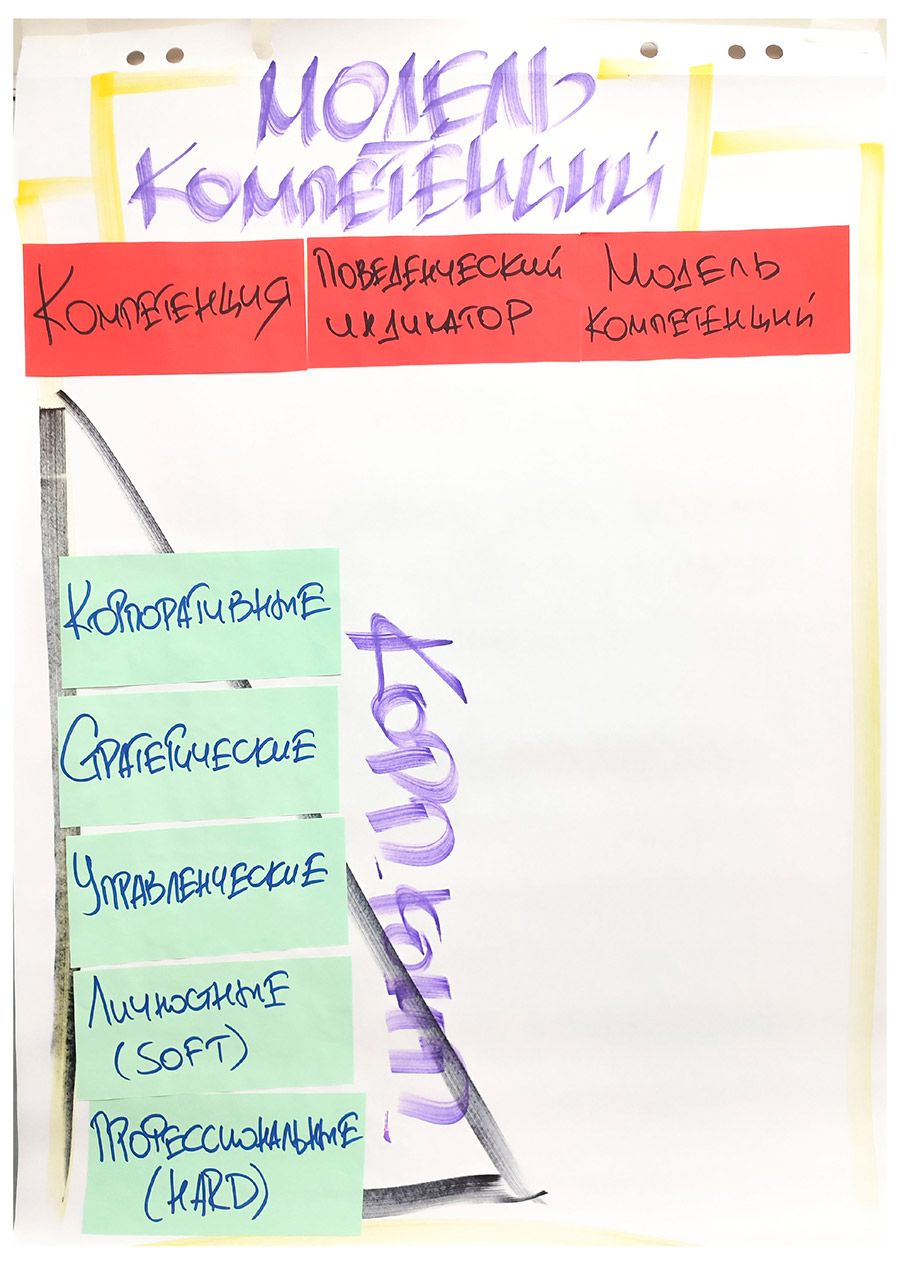 МОДЕЛЬ
КОМПЕТЕНЦИЙ
КОМПЕТЕНЦИЯ
ПОВЕДЕНЧЕСКИЙ
ИНДИКАТОР
МОДЕЛЬ
КОМПЕТЕНЦИЙ
КОРПОРАТИВНЫЕ
СТРАТЕГИЧЕСКИЕ
УПРАВЛЕНЧЕСКИЕ
ЛИЧНОСТНЫЕ
(SOFT)
ПРОФЕССИОНАЛЬНЫЕ
(HARD)
КОРП. КОМП.